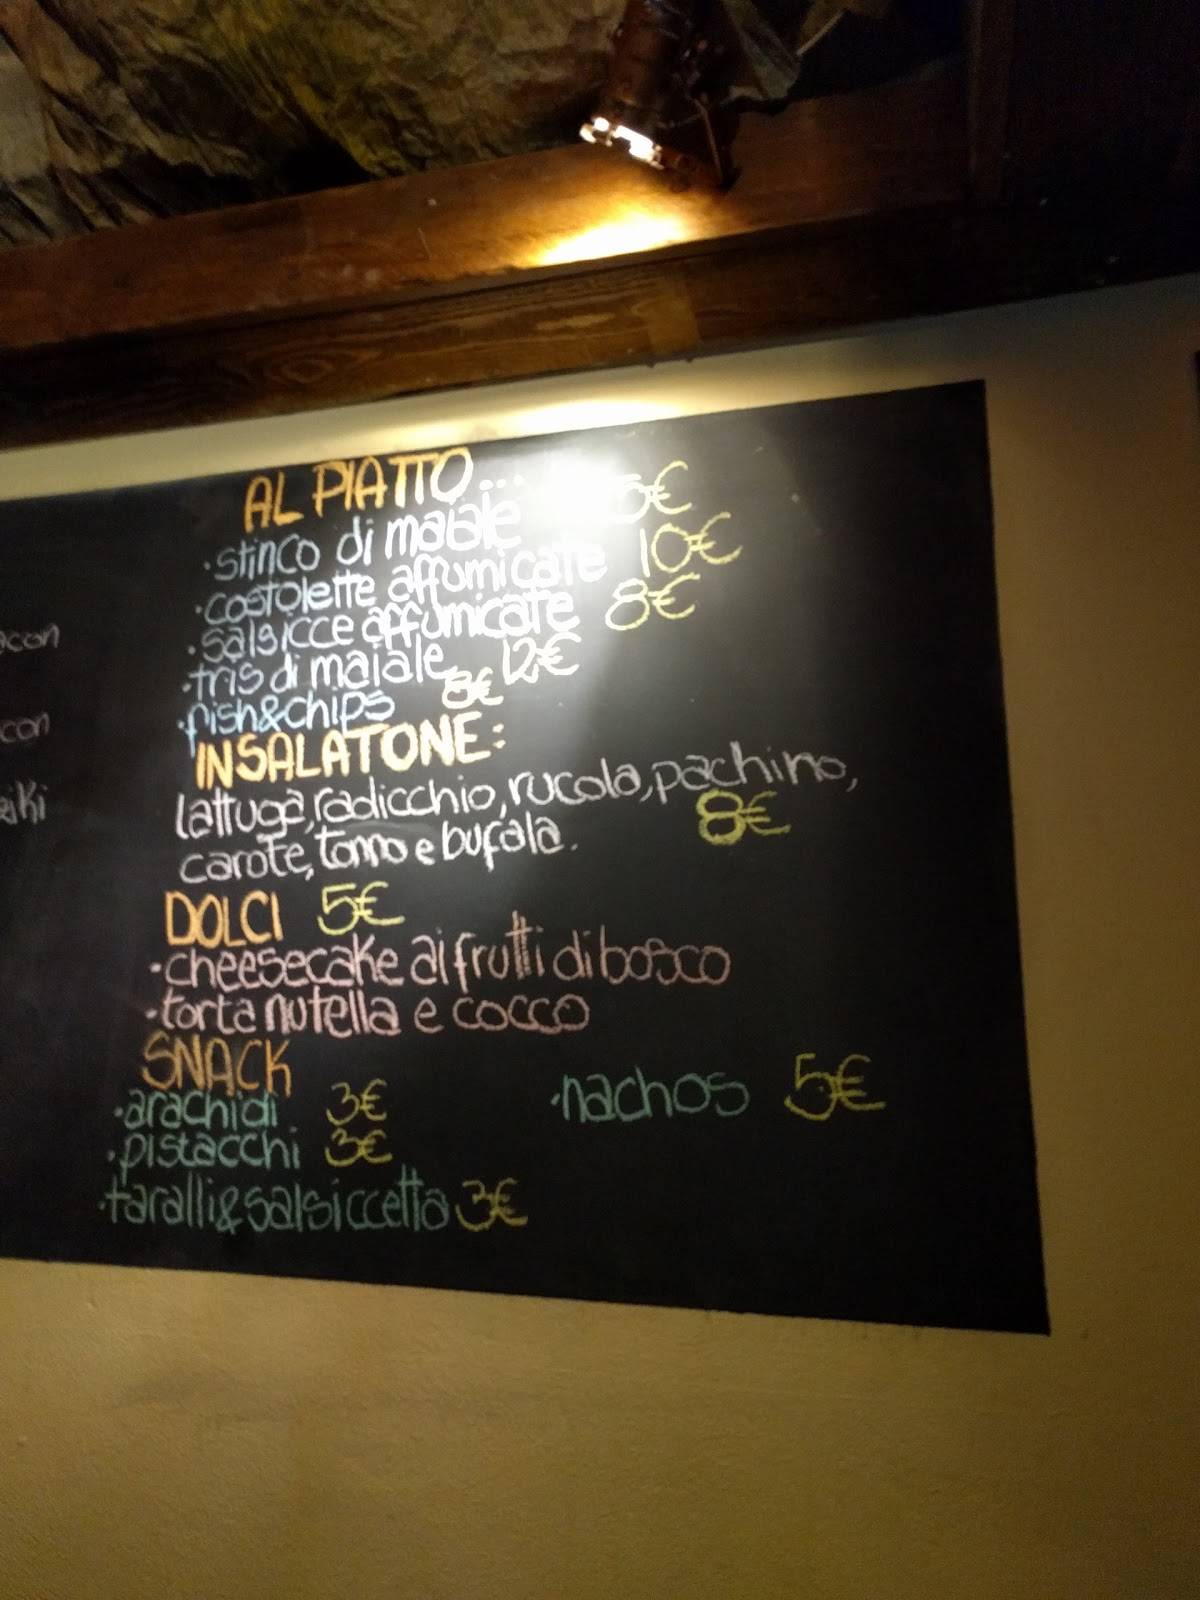 AL PIATTO...
·stinco di maiale 5€
·costolette affumicate 10€
·salsicce affumicate 8€
·tris di maiale 12€
·fish&chips 8€
INSALATONE:
lattuga, radicchio, rucola, pachino,
carote, tonno e bufala. 8€
DOLCI 5€
·cheesecake ai frutti di bosco
·torta nutella e cocco
SNACK
·arachidi 3€ ·nachos 5€
·pistacchi 3€
·taralli&salsiccetta 3€